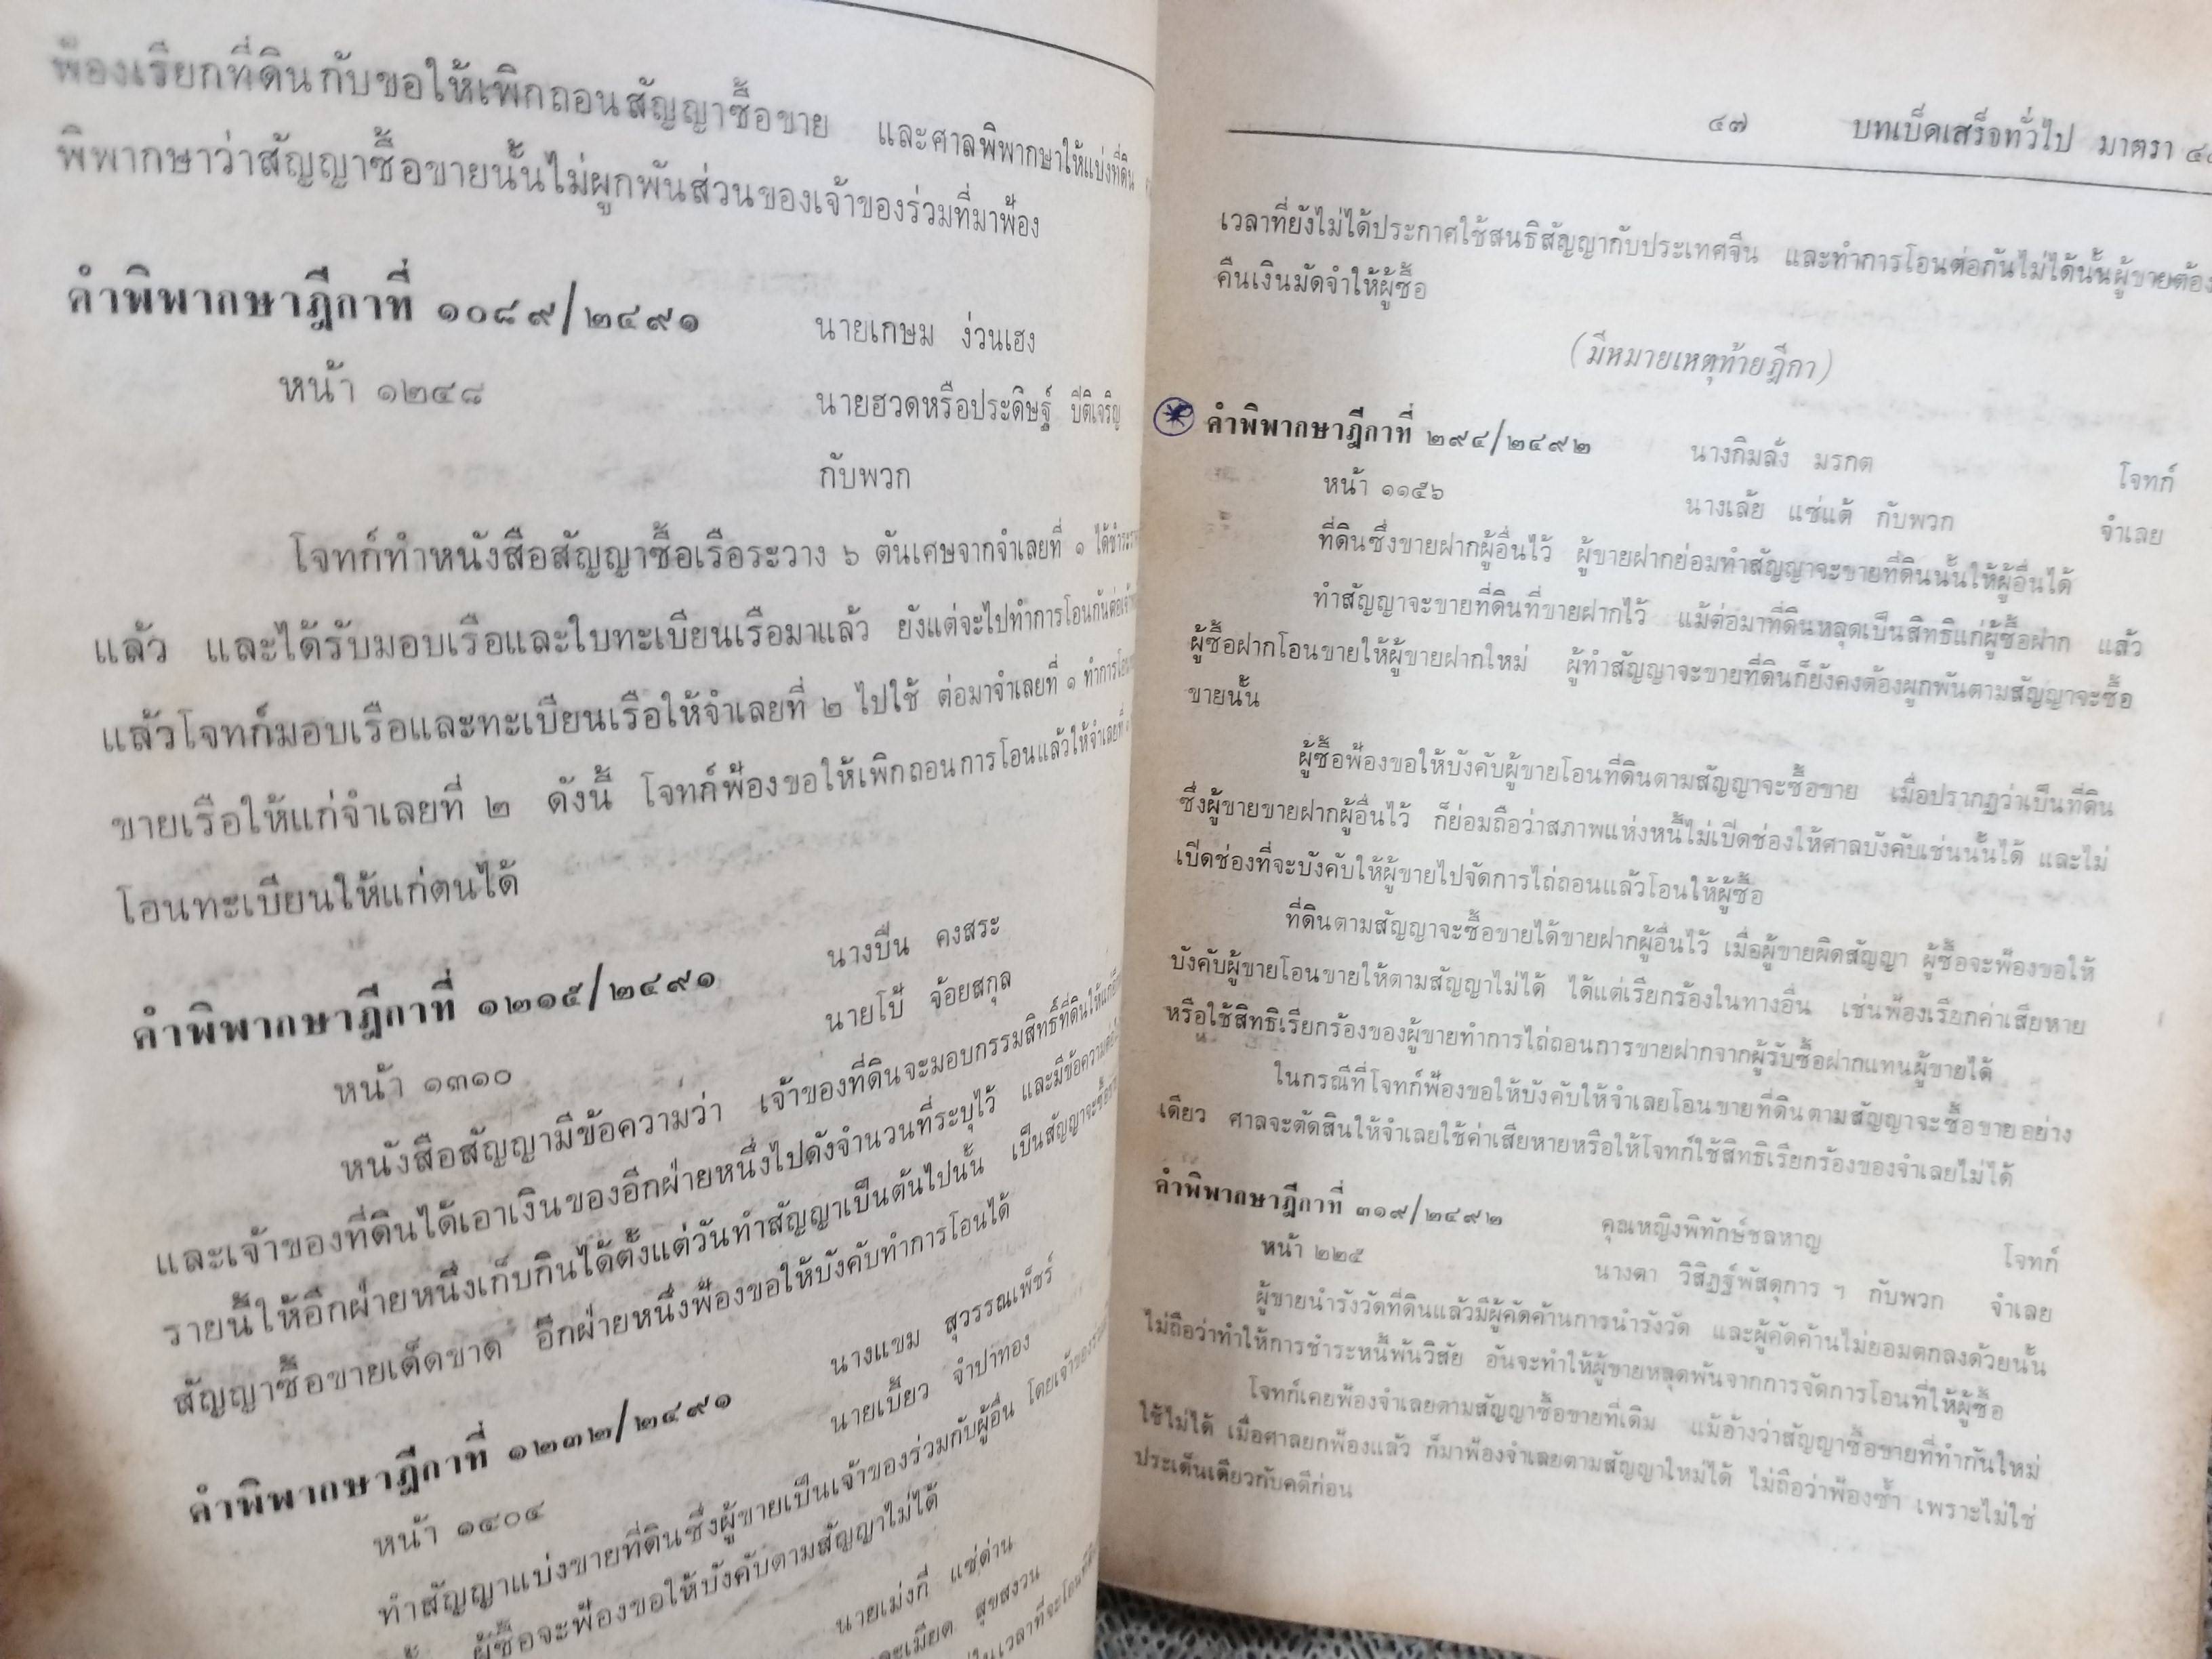 ฟ้องเรียกที่ดินกับขอให้เพิกถอนสัญญาซื้อขาย และศาลพิพากษาให้แบ่งที่ดิน
พิพากษาว่าสัญญาซื้อขายนั้นไม่ผูกพันส่วนของเจ้าของร่วมที่มาฟ้อง
คำพิพากษาฎีกาที่ ๑๐๘๙/๒๔๙๑ นายเกษม ง่วนเฮง
หน้า ๑๒๔๘ นายฮวดหรือประดิษฐ์ ปีติเจริญ
กับพวก
โจทก์ทำหนังสือสัญญาซื้อเรือระวาง ๖ ตันเศษจากจำเลยที่ ๑
แล้ว และได้รับมอบเรือและใบทะเบียนเรือมาแล้ว ยังแต่จะไปทำการโอนกันต่อ
แล้วโจทก์มอบเรือและทะเบียนเรือให้จำเลยที่ ๒ ไปใช้ ต่อมาจำเลยที่ ๑ ทำการ
ขายเรือให้แก่จำเลยที่ ๒ ดังนี้ โจทก์ฟ้องขอให้เพิกถอนการโอนแล้วให้จำเลยที่
โอนทะเบียนให้แก่ตนได้
คำพิพากษาฎีกาที่ ๑๒๑๕/๒๔๙๑ นางปั่น คงสระ
หน้า ๑๓๑๐ นายโป้ จ้อยสกุล
หนังสือสัญญามีข้อความว่า เจ้าของที่ดินจะมอบกรรมสิทธิ์ที่ดินให้แก่
และเจ้าของที่ดินได้เอาเงินของอีกฝ่ายหนึ่งไปดังจำนวนที่ระบุไว้ และมีข้อความ
รายนี้ให้อีกฝ่ายหนึ่งเก็บกินได้ตั้งแต่วันทำสัญญาเป็นต้นไปนั้น เป็นสัญญาจะซื้อ
สัญญาซื้อขายเด็ดขาด อีกฝ่ายหนึ่งฟ้องขอให้บังคับทำการโอนได้
คำพิพากษาฎีกาที่ ๑๒๓๒/๒๔๙๑ นางแขม สุวรรณเพ็ชร์
หน้า ๑๔๐๔ นายเบี้ยว จำปาทอง
ทำสัญญาแบ่งขายที่ดินซึ่งผู้ขายเป็นเจ้าของร่วมกับผู้อื่น โดยเจ้าของ
ผู้ซื้อจะฟ้องขอให้บังคับตามสัญญาไม่ได้
นายเม่งกี่ แซ่ด่าน
สุขสงวน
๔๗ บทเบ็ดเสร็จทั่วไป มาตรา
เวลาที่ยังไม่ได้ประกาศใช้สนธิสัญญากับประเทศจีน และทำการโอนต่อกันไม่ได้นั้นผู้ขายต้อง
คืนเงินมัดจำให้ผู้ซื้อ
(มีหมายเหตุท้ายฎีกา)
คำพิพากษาฎีกาที่ ๒๙๔/๒๔๙๒ นางกิมลั่ง มรกต โจทก์
หน้า ๑๑๕๖ นางเลัย แซ่แต้ กับพวก จำเลย
ที่ดินซึ่งขายฝากผู้อื่นไว้ ผู้ขายฝากย่อมทำสัญญาจะขายที่ดินนั้นให้ผู้อื่นได้
ทำสัญญาจะขายที่ดินที่ขายฝากไว้ แม้ต่อมาที่ดินหลุดเป็นสิทธิแก่ผู้ซื้อฝาก แล้ว
ผู้ซื้อฝากโอนขายให้ผู้ขายฝากใหม่ ผู้ทำสัญญาจะขายที่ดินก็ยังคงต้องผูกพันตามสัญญาจะซื้อ
ขายนั้น
ผู้ซื้อฟ้องขอให้บังคับผู้ขายโอนที่ดินตามสัญญาจะซื้อขาย เมื่อปรากฏว่าเป็นที่ดิน
ซึ่งผู้ขายขายฝากผู้อื่นไว้ ก็ย่อมถือว่าสภาพแห่งหนี้ไม่เปิดช่องให้ศาลบังคับเช่นนั้นได้ และไม่
เปิดช่องที่จะบังคับให้ผู้ขายไปจัดการไถ่ถอนแล้วโอนให้ผู้ซื้อ
ที่ดินตามสัญญาจะซื้อขายได้ขายฝากผู้อื่นไว้ เมื่อผู้ขายผิดสัญญา ผู้ซื้อจะฟ้องขอให้
บังคับผู้ขายโอนขายให้ตามสัญญาไม่ได้ ได้แต่เรียกร้องในทางอื่น เช่นฟ้องเรียกค่าเสียหาย
หรือใช้สิทธิเรียกร้องของผู้ขายทำการไถ่ถอนการขายฝากจากผู้รับซื้อฝากแทนผู้ขายได้
ในกรณีที่โจทก์ฟ้องขอให้บังคับให้จำเลยโอนขายที่ดินตามสัญญาจะซื้อขายอย่าง
เดียว ศาลจะตัดสินให้จำเลยใช้ค่าเสียหายหรือให้โจทก์ใช้สิทธิเรียกร้องของจำเลยไม่ได้
คำพิพากษาฎีกาที่ ๓๑๙/๒๔๙๒ คุณหญิงพิทักษ์ชลหาญ โจทก์
หน้า ๒๒๕ นางตา วิสิฎฐ์พัสดุการ ฯ กับพวก จำเลย
ผู้ขายนำรังวัดที่ดินแล้วมีผู้คัดค้านการนำรังวัด และผู้คัดค้านไม่ยอมตกลงด้วยนั้น
ไม่ถือว่าทำให้การชำระหนี้พ้นวิสัย อันจะทำให้ผู้ขายหลุดพ้นจากการจัดการโอนที่ให้ผู้ซื้อ
โจทก์เคยฟ้องจำเลยตามสัญญาซื้อขายที่เดิม แม้อ้างว่าสัญญาซื้อขายที่ทำกันใหม่
ใช้ไม่ได้ เมื่อศาลยกฟ้องแล้ว ก็มาฟ้องจำเลยตามสัญญาใหม่ได้ ไม่ถือว่าฟ้องซ้ำ เพราะไม่ใช่
ประเด็นเดียวกับคดีก่อน